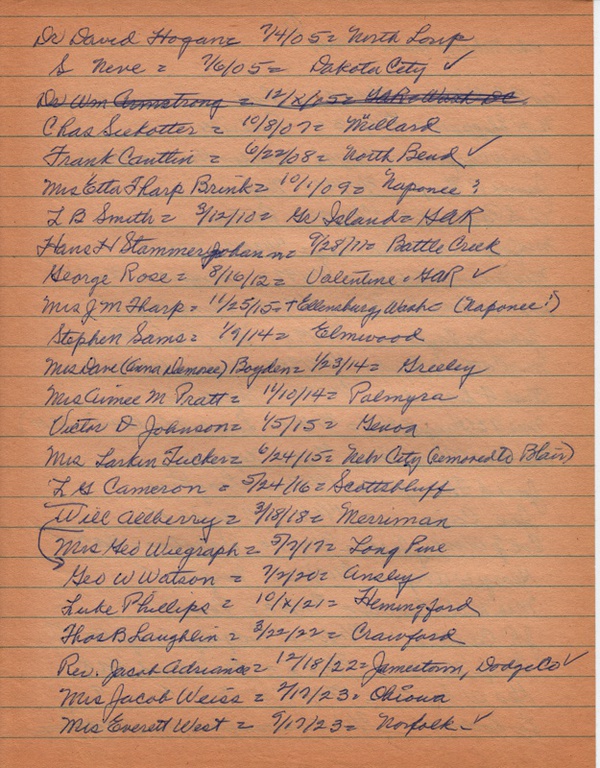 Dr David Hogan = 7/4/05 = North Loup
S Neve = 7/6/05 = Dakota City ✓
Dr Wm Armstrong = 12/x/05 = GAR = Wash DC.
Chas Siekotter = 10/8/07 = Millard
Frank Cantlin = 6/22/08 = North Bend ✓
Mrs Etta Tharp Brink = 10/1/09 = Naponee ?
L B Smith = 3/12/10 = Gr Island = GAR
Hans H Stammerjohann = 9/28/11 = Battle Creek
George Rose = 8/16/12 = Valentine = GAR ✓
Mrs J M Tharp = 11/25/15 = + Ellensburg Wash = (Naponee?)
Stephen Sams = 1/9/14 = Elmwood
Mrs Dave (Anna Demaree) Boyden = 1/23/14 = Greeley
Mrs Aimee M Pratt = 11/10/14 = Palmyra
Victor D Johnson = 1/5/15 = Genoa
Mrs Larkin Tucker = 6/24/15 = Neb City (removed to Blair)
L G Cameron = 5/24/16 = Scottsbluff
Will Allberry = 3/18/18 = Merriman
Mrs Geo Wiegraph = 5/2/17 = Long Pine
Geo W Watson = 7/2/20 = Ansley
Luke Phillips = 10/x/21 = Hemingford
Thos B Laughlin = 3/22/22 = Crawford
Rev. Jacob Adriance = 12/18/22 = Jamestown, Dodge Co ✓
Mrs Jacob Weiss = 2/17/23 = Ohiowa
Mrs Everett West = 9/17/23 = Norfolk - ✓